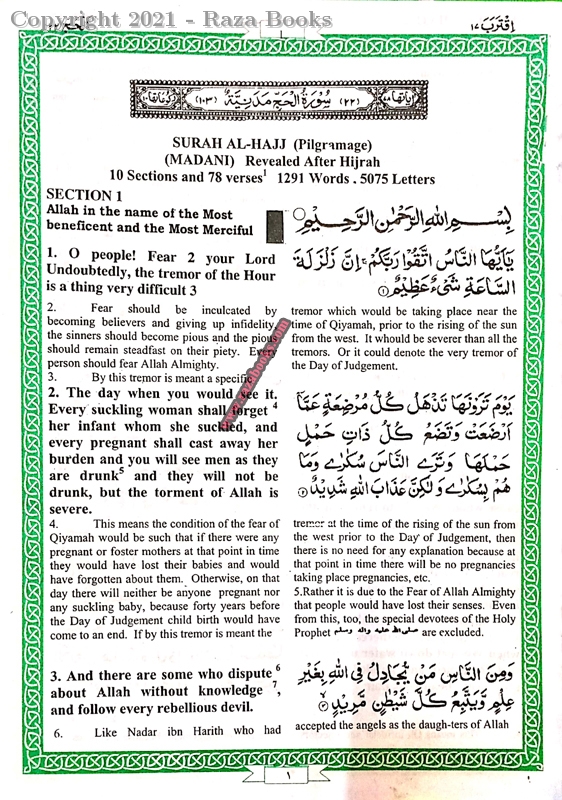 Copyright 2021 - Raza Books
اقترب ١٧
سُورَةُ الْحَجِّ مَدَنِيَّةٌ
(١٠٣)
(٢٢)
SURAH AL-HAJJ (Pilgramage)
(MADANI) Revealed After Hijrah
10 Sections and 78 verses1 1291 Words . 5075 Letters
SECTION 1
Allah in the name of the Most
beneficent and the Most Merciful
بِسْمِ اللهِ الرَّحْمٰنِ الرَّحِيْمِ
1. O people! Fear 2 your Lord
Undoubtedly, the tremor of the Hour
is a thing very difficult 3
يٰۤاَيُّهَا النَّاسُ اتَّقُوْا رَبَّكُمْ ۚ اِنَّ زَلْزَلَةَ
السَّاعَةِ شَىْءٌ عَظِيْمٌ ۝١
2. Fear should be inculcated by
becoming believers and giving up infidelity,
the sinners should become pious and the pious
should remain steadfast on their piety. Every
person should fear Allah Almighty.
3. By this tremor is meant a specific
tremor which would be taking place near the
time of Qiyamah, prior to the rising of the sun
from the west. It whould be severer than all the
tremors. Or it could denote the very tremor of
the Day of Judgement.
2. The day when you would see it.
Every suckling woman shall forget 4
her infant whom she suckled, and
every pregnant shall cast away her
burden and you will see men as they
are drunk5 and they will not be
drunk, but the torment of Allah is
severe.
يَوْمَ تَرَوْنَهَا تَذْهَلُ كُلُّ مُرْضِعَةٍ عَمَّاۤ
اَرْضَعَتْ وَتَضَعُ كُلُّ ذَاتِ حَمْلٍ
حَمْلَهَا وَتَرَى النَّاسَ سُكٰرٰى وَمَا
هُمْ بِسُكٰرٰى وَلٰكِنَّ عَذَابَ اللهِ شَدِيْدٌ ۝٢
4. This means the condition of the fear of
Qiyamah would be such that if there were any
pregnant or foster mothers at that point in time
they would have lost their babies and would
have forgotten about them. Otherwise, on that
day there will neither be anyone pregnant nor
any suckling baby, because forty years before
the Day of Judgement child birth would have
come to an end. If by this tremor is meant the
tremor at the time of the rising of the sun from
the west prior to the Day of Judgement, then
there is no need for any explanation because at
that point in time there will be no pregnancies
taking place pregnancies, etc.
5.Rather it is due to the Fear of Allah Almighty
that people would have lost their senses. Even
from this, too, the special devotees of the Holy
Prophet صلى الله عليه واله وسلم are excluded.
3. And there are some who dispute 6
about Allah without knowledge 7,
and follow every rebellious devil.
وَمِنَ النَّاسِ مَنْ يُّجَادِلُ فِى اللهِ بِغَيْرِ
عِلْمٍ وَّيَتَّبِعُ كُلَّ شَيْطٰنٍ مَّرِيْدٍ ۝٣
6. Like Nadar ibn Harith who had
accepted the angels as the daugh-ters of Allah
١